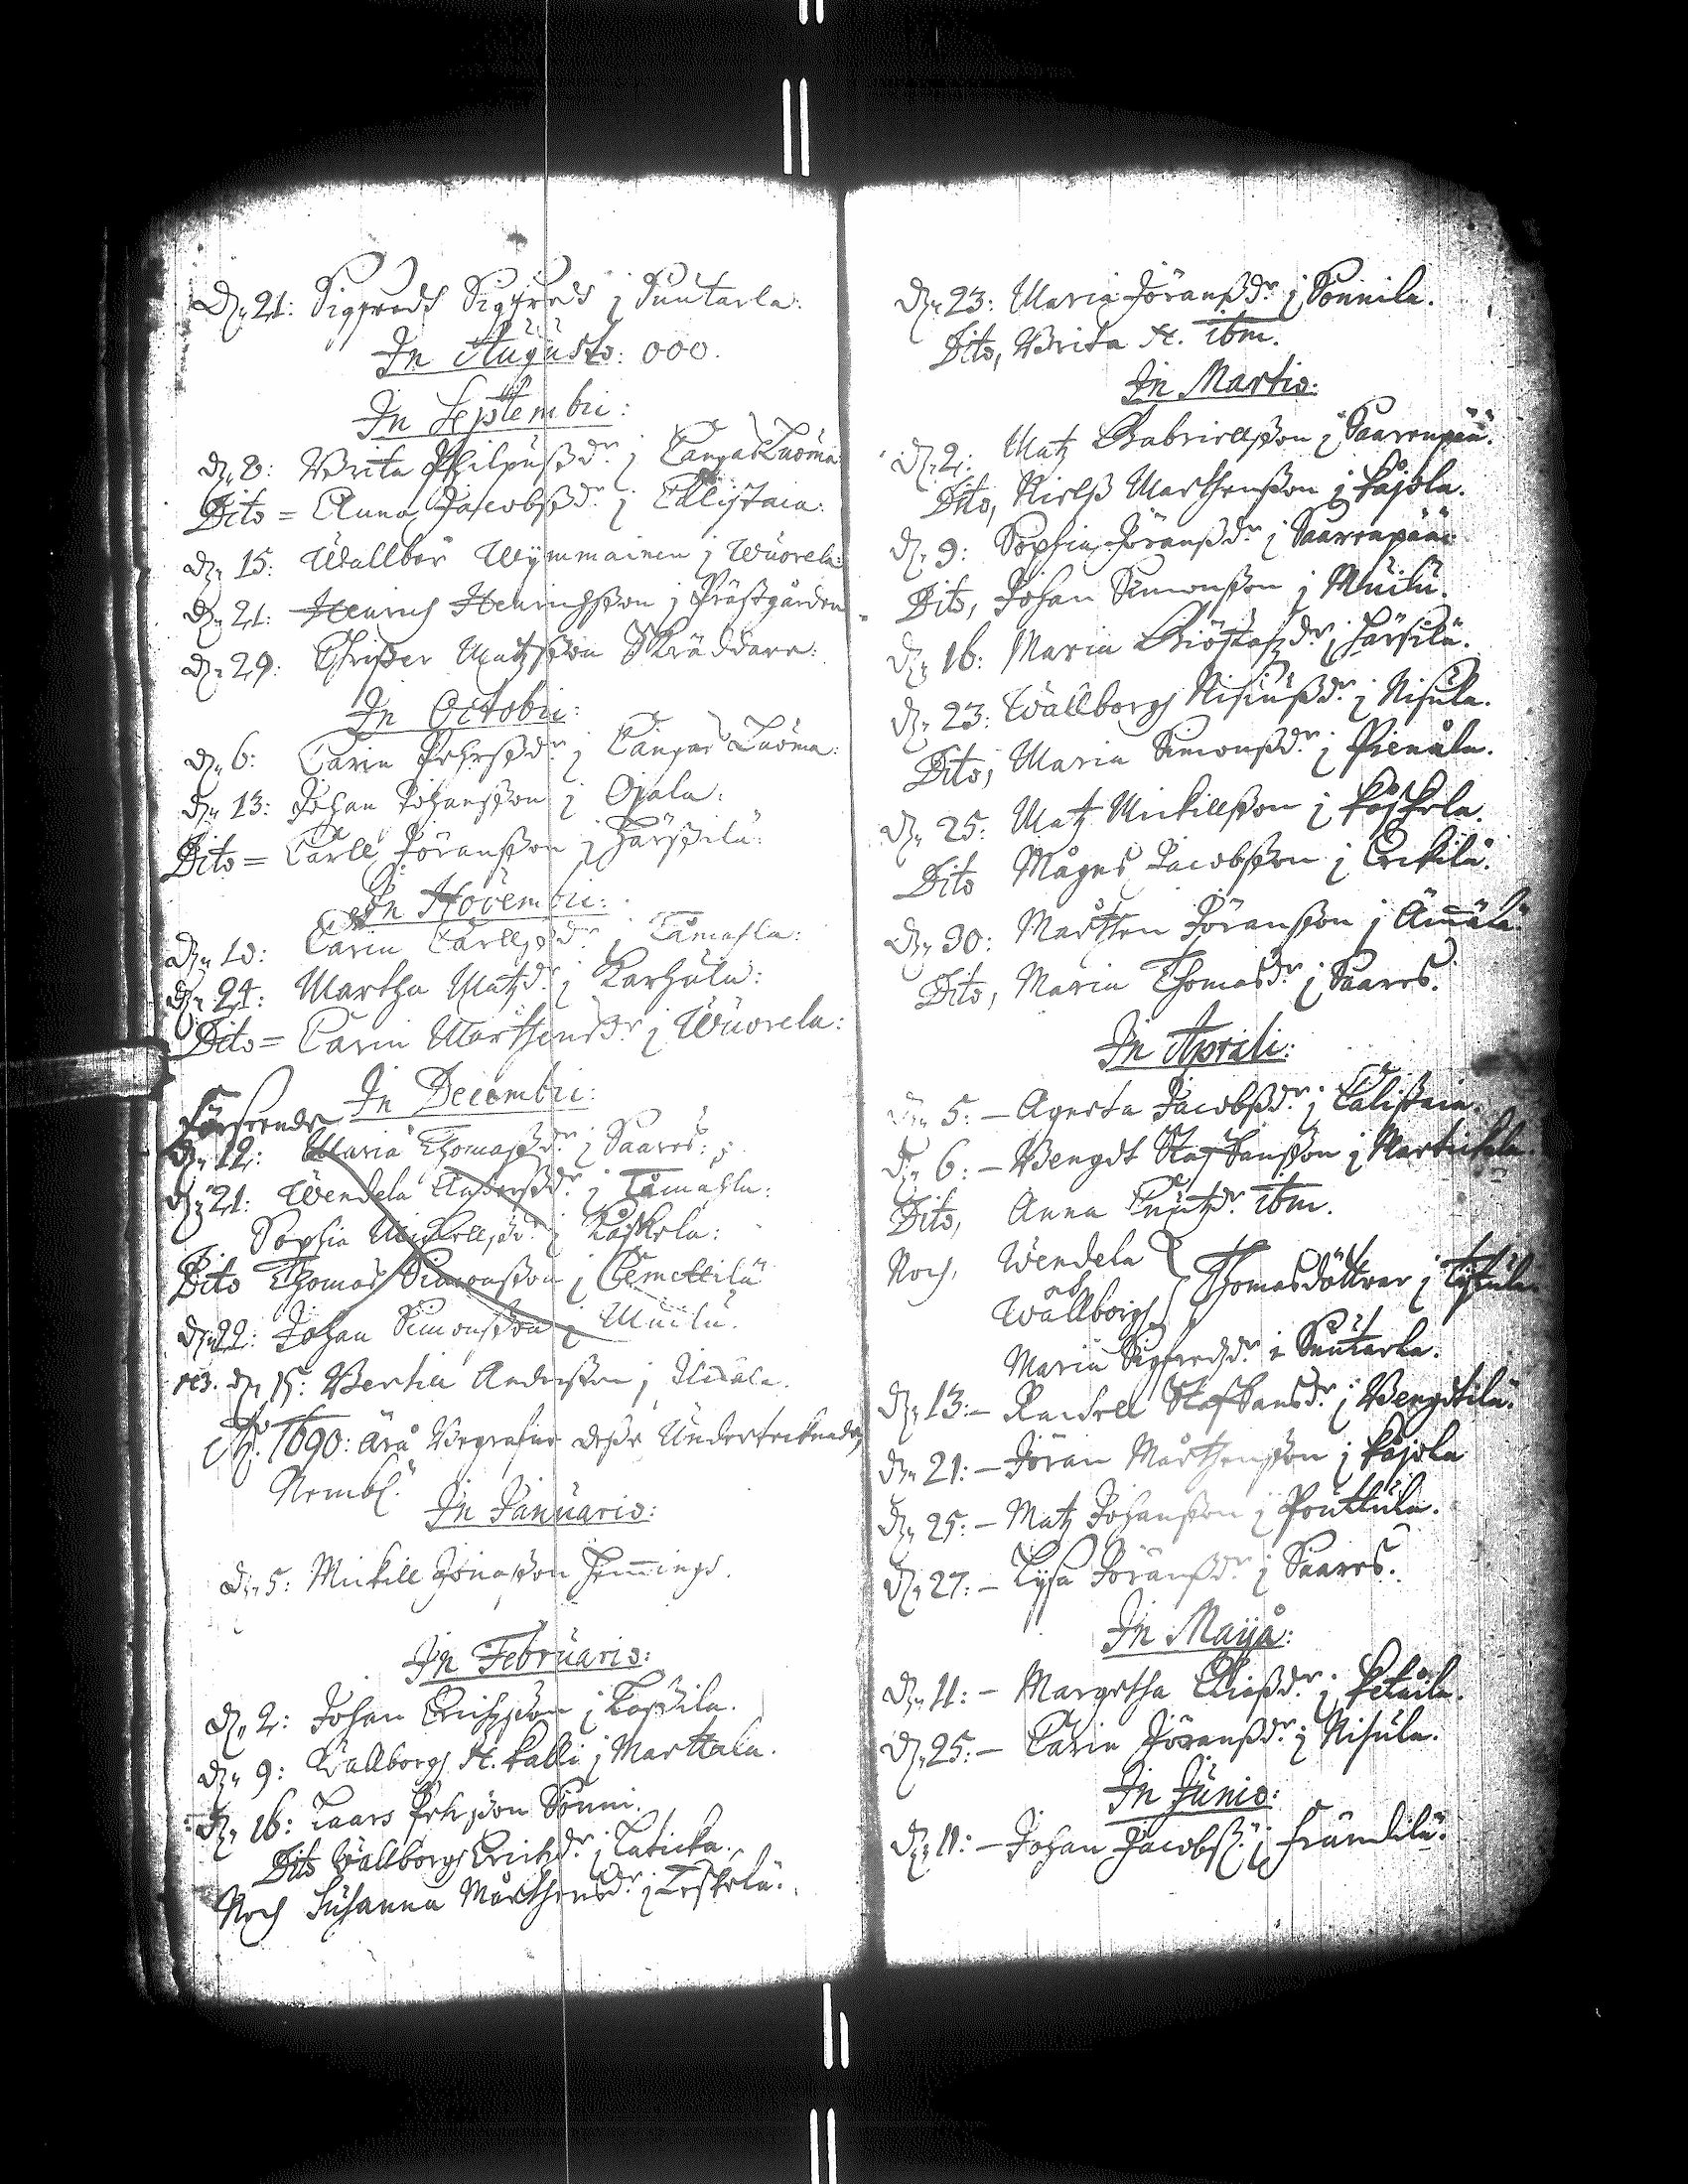 D: 21: Sigfredh Sigfreds j Suutarla:
In Augusto: 000.
In Septembri:
D: 8: Brita Philpusdr. j CangasLuoma
Dito = Anna Jacobsdr. j Callistaia:
D: 15: Wallbor Wymmainen j Wuorela:
D: 21: Henrich Henrichsson j Prästgården
D: 29: Christer Matzson Skräddare:
In Octobri:
D: 6: Carin Pehrsdr. j Cangas Luoma:
D: 13: Johan Johansson j Ojala:
Dito = Carll Jöransson j Härsilä:
In Novembri:
D: 10: Carin Carllsdr. j Tamahla:
D: 24: Martha Matzdr. j Karhula:
Dito = Carin Mårthensdr. j Wuorela:
In Decembri:
D: 12: Maria Thomasdr. j Saares:
D: 21: Wendela Andersdr. j Tamahla:
Sophia Mickellsdr. j Koskela:
Dito Thomas Simonsson j Clemettilä
D: 22: Johan Simonsson j Muilu.
D: 15: Bertill Andersson j
Ao. 1690: ärå Begrafne desse Undertecknade,
Nembl.
In Januario:
D: 5: Mickill Jönasson Hemmings.
In Februario:
D: 2: Johan Erichsson j Tassila.
D: 9: Wallborg H. Kalli j Marttala.
D: 16: Laars Pehrsson Sonni.
Dito Wallborg Erichsdr. j Laticka.
Noch Susanna Mårthensdr. j Leskelä.
D: 23: Maria Jöransdr. j Sonnila.
Dito, Brita H. ibm.
In Martio:
D: 2: Matz Gabriellsson j Saarenpää.
Dito, Nielss Marthensson j Kåjola.
D: 9: Sophia Jöransdr. j Saarenpää:
Dito, Johan Simonsson j Muilu.
D: 16: Maria Giöstafzdr. j Härsilä.
D: 23: Wallborg Nisiusdr. j Nisula.
Dito, Maria Simonsdr. j Pienala.
D: 25: Matz Mickillsson j Kåskela.
Dito Mågns Jacobsson j Erckilä.
D: 30: Mårthen Jöransson j Ämmälä
Dito, Maria Thomasdr. j Saares.
In Aprili:
D: 5: – Agneta Jacobsdr. j Callistaia.
D: 6: – Bengdt Staffansson j Martickala.
Dito, Anna ibm.
Noch, Wendela
och
Wallborg Thomasdöttrar j
Maria Sigfredzdr. i Suutarla.
D: 13: – Rachell Staffansdr. j Bengdtilä.
D: 21: – Jöran Mårthensson j Kåjola
D: 25: – Matz Johansson j Pouttula.
D: 27: – Lysa Jöransdr. j Saares.
In Maijå:
D: 11: – Margetha Eliasdr. j Ketaila.
D: 25: – Carin Jöransdr. j Nisula.
In Junio:
D: 11: – Johan Jacobs. j Frändilä.